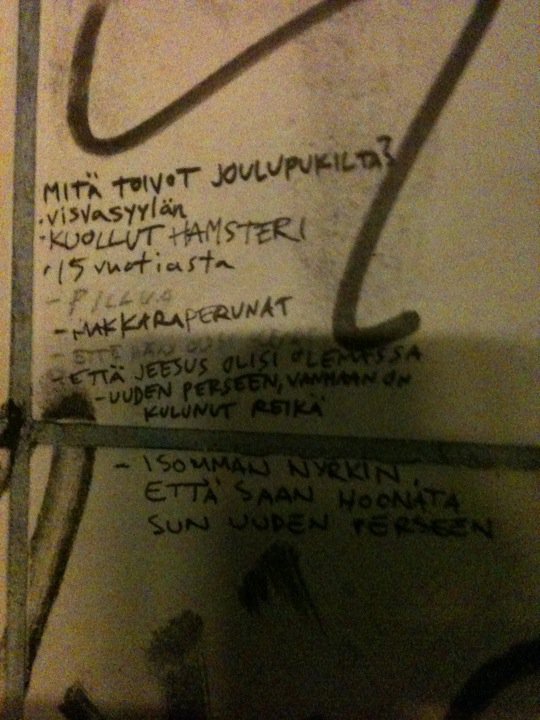 MITÄ TOIVOT JOULUPUKILTA?
·visvasyylän
·KUOLLUT HAMSTERI
·15 vuotiasta
- PILLUA
- MAKKARAPERUNAT
- ETTÄ JEESUS OLISI OLEMASSA
- UUDEN PERSEEN, VANHAAN ON
KULUNUT REIKÄ
- ISOMMAN NYRKIN,
ETTÄ SAAN HOONATA
SUN UUDEN PERSEEN